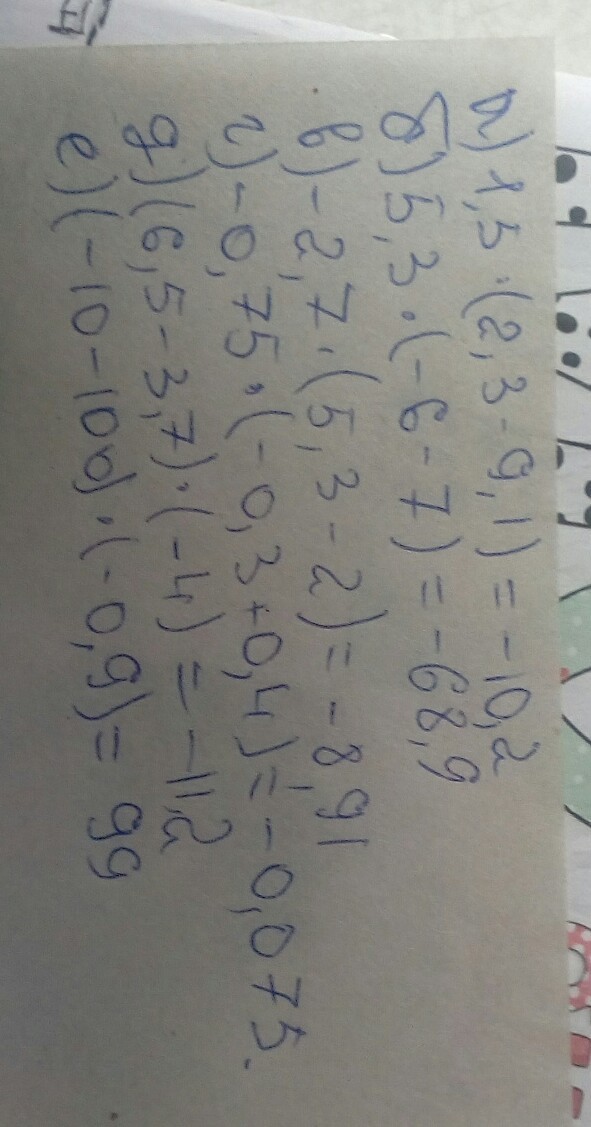 а) 1,5·(2,3-9,1) = -10,2
б) 5,3·(-6-7) = -68,9
в) -2,7·(5,3-2) = -8,91
г) -0,75·(-0,3+0,4) = -0,075.
д) (6,5-3,7)·(-4) = -11,2
е) (-10-100)·(-0,9) = 99